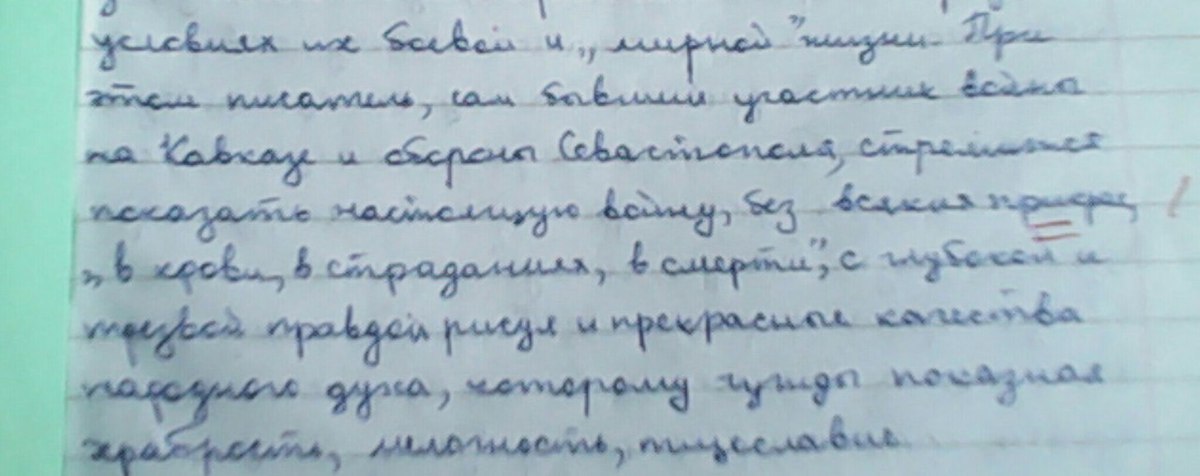 условиях их боевой и „мирной” жизни. При
этом писатель, сам бывший участник войны
на Кавказе и обороны Севастополя, стремится
показать настоящую войну, без всяких прикрас,
„в крови, в страданиях, в смерти”, с глубокой и
трезвой правдой рисуя и прекрасные качества
народного духа, которому чужды показная
храбрость, мелочность, тщеславие.